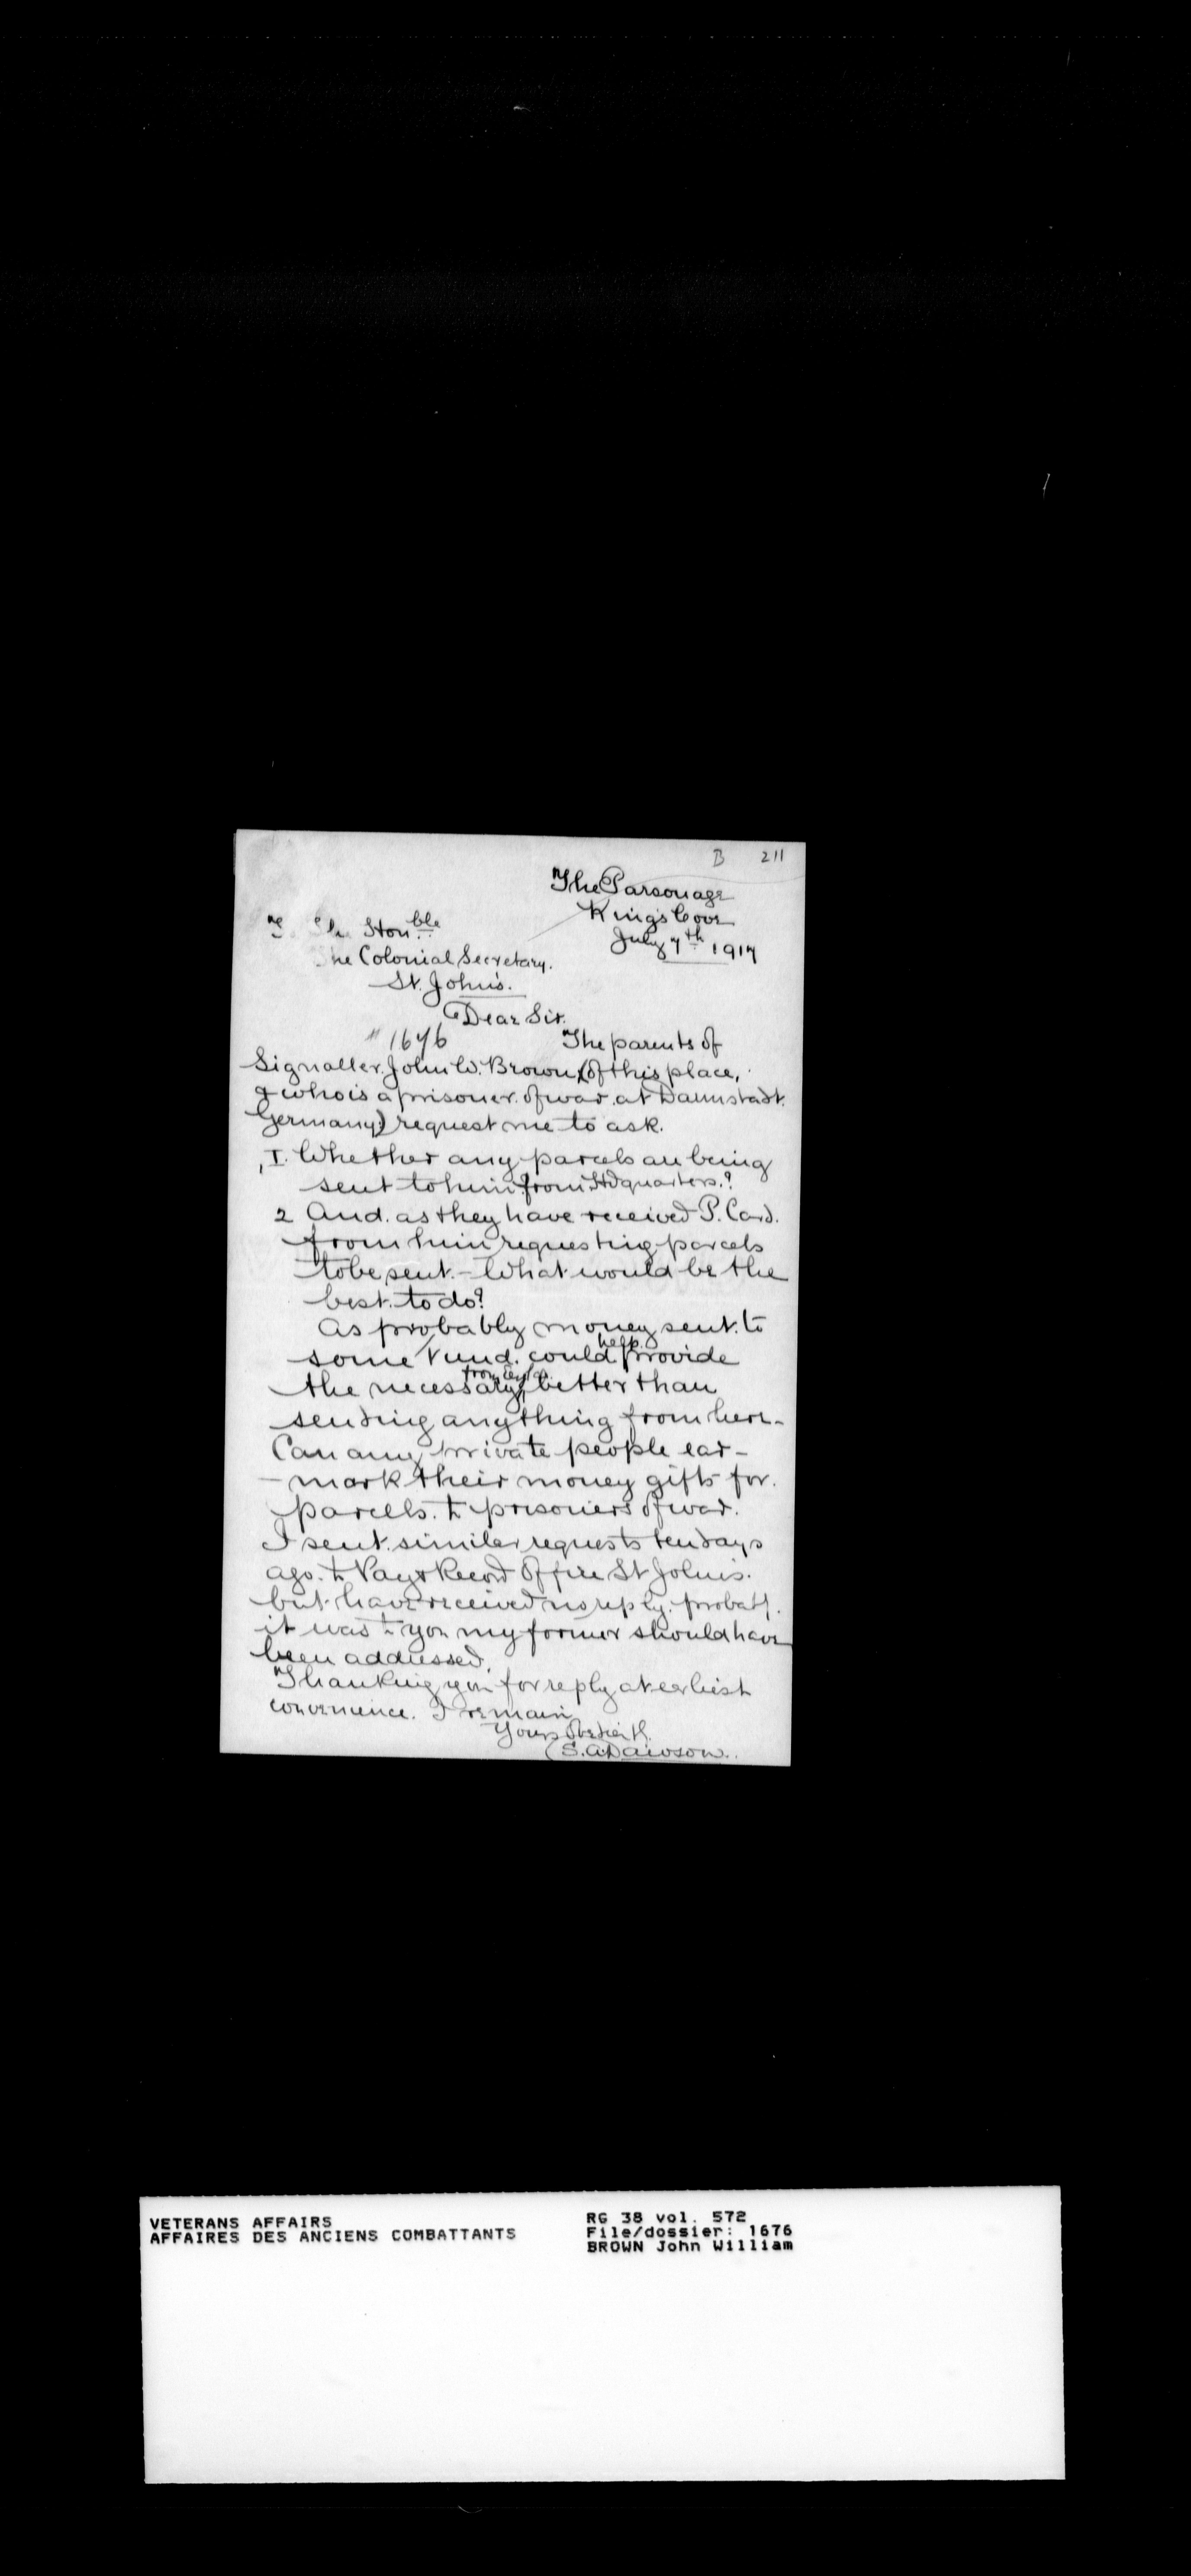 B 211
The Parsonage
King's Cove
July 7th 1917
To The Honble
The Colonial Secretary.
St. John's.
Dear Sir.
" 1676
The parents of
Signaller. John W. Brown, (of this place,
& who is a prisoner of war. at Darmstadt.
Germany) request me to ask.
1. Whether any parcels are being
sent to him from Hdquarters.?
2 And. as they have received P. Card.
from him requesting parcels
to be sent. - What would be the
best. to do?
As probably money sent. to
some Fund. could help provide
the necessary, from Engla. better than
sending anything from here -
Can any private people ear-
- mark their money gifts for.
parcells. to prisoners of war.
I sent. similar requests ten days
ago. to Pay & Record Office St John's.
but have received no reply. probaby.
it was to you my former should have
been addressed.
Thanking you for reply at earliest
convenience. I remain
Yours Obedient
(S. A. Dawson.
VETERANS AFFAIRS
AFFAIRES DES ANCIENS COMBATTANTS
RG 38 vol. 572
File/dossier: 1676
BROWN John William